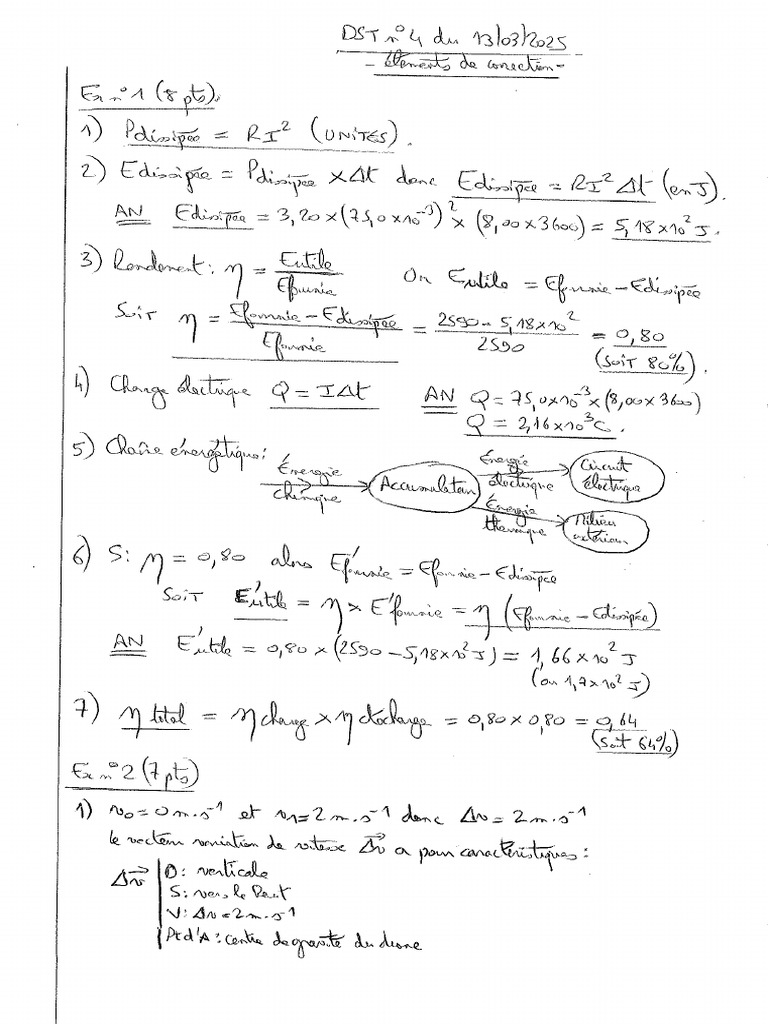 DST n°4 du 13/03/2025
- éléments de correction -
Ex n°1 (8 pts).
1) Pdissipée = RI² (UNITÉS).
2) Edissipée = Pdissipée × Δt donc Edissipée = RI² Δt (en J).
AN Edissipée = 3,20 × (75,0×10⁻³)² × (8,00 × 3600) = 5,18×10² J.
3) Rendement : η = Eutile / Efournie Or Eutile = Efournie – Edissipée
Soit η = (Efournie – Edissipée) / Efournie = (2590 – 5,18×10²) / 2590 = 0,80
(soit 80%).
4) Charge électrique Q = IΔt AN Q = 75,0×10⁻³ × (8,00 × 3600)
Q = 2,16×10³ C.
5) Chaîne énergétique :
Énergie chimique
Accumulateur
Énergie électrique
Circuit électrique
Énergie thermique
Milieu extérieur
6) Si η = 0,80 alors E'fournie = Efournie – Edissipée
Soit E'utile = η × E'fournie = η (Efournie – Edissipée)
AN E'utile = 0,80 × (2590 – 5,18×10² J) = 1,66×10² J
(ou 1,7×10² J)
7) η total = η charge × η décharge = 0,80 × 0,80 = 0,64
(soit 64%)
Ex n°2 (7 pts)
1) v₀ = 0 m.s⁻¹ et v₁ = 2 m.s⁻¹ donc Δv = 2 m.s⁻¹
le vecteur variation de vitesse Δv⃗ a pour caractéristiques :
Δv⃗ | D : verticale
S : vers le haut
V : Δv = 2 m.s⁻¹
Pt d'A : centre de gravité du drone